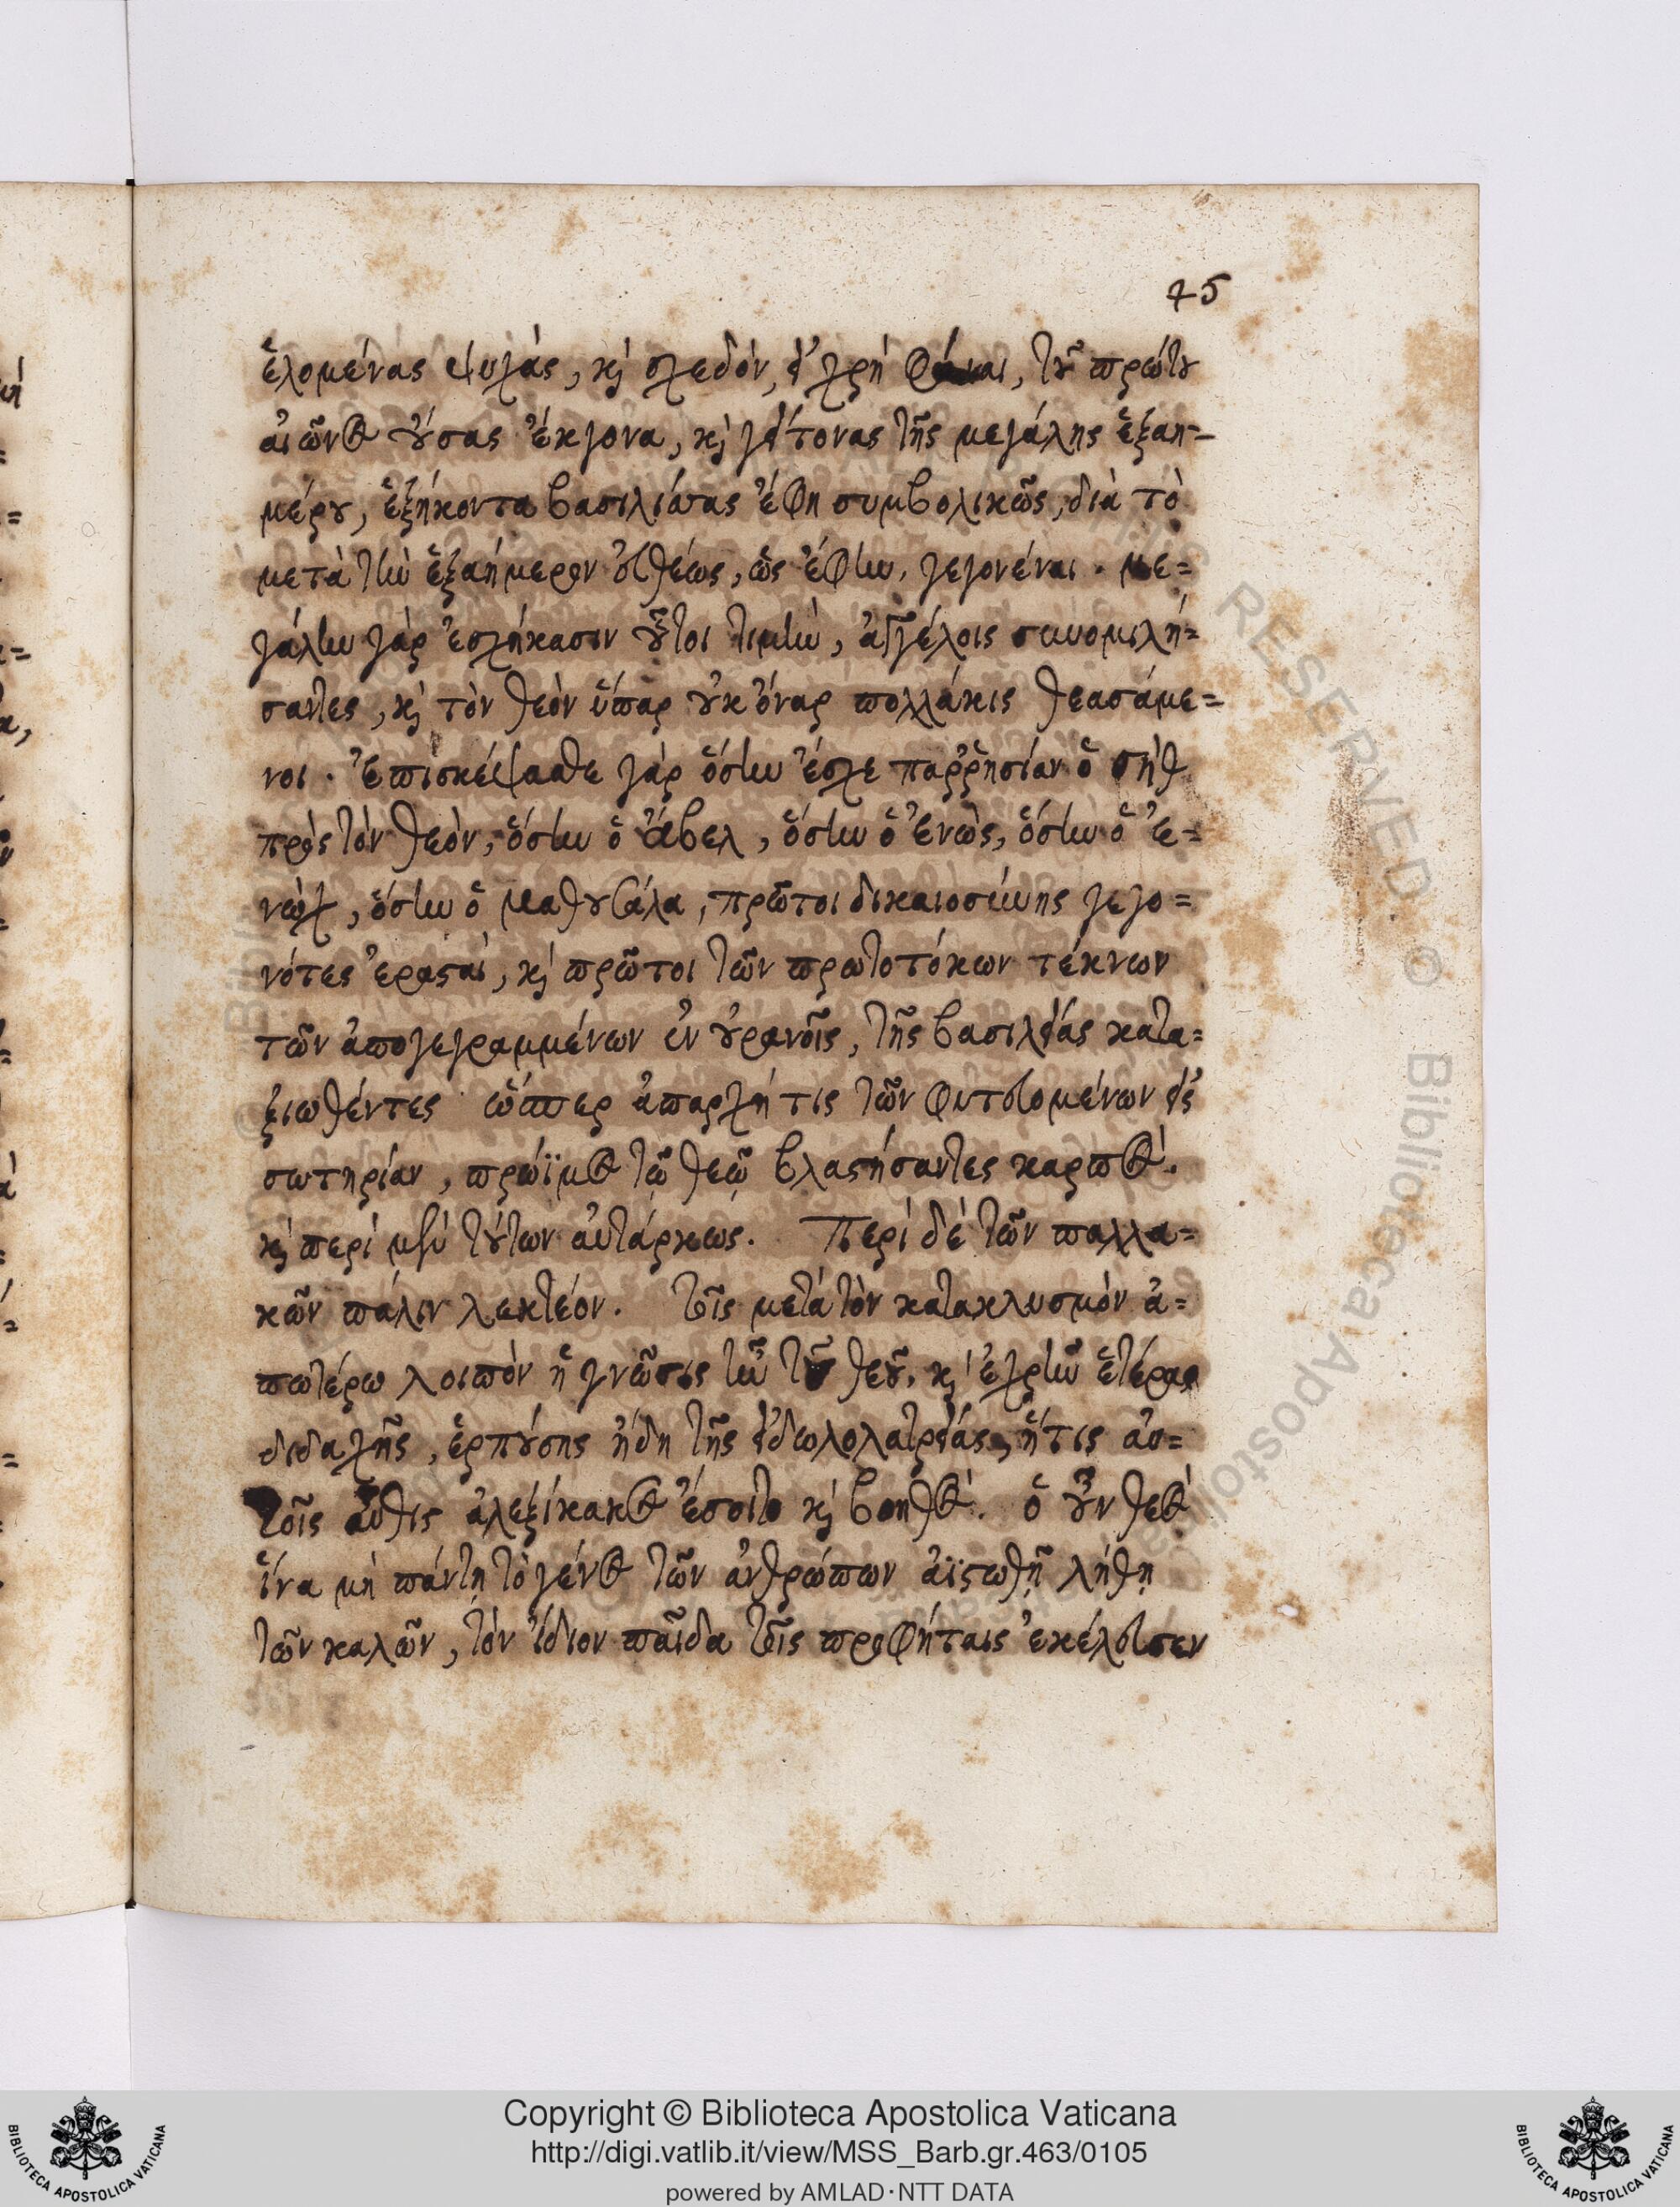 45
ἑλομένας ψυχὰς, κὶ σχεδὸν, εἰ χρὴ φάναι, τοῦ πρώτου
αἰῶνος οὔσας ἔκγονα, κὶ γείτονας τῆς μεγάλης ἑξαη-
μέρου, ἑξήκοντα βασιλίσσας ἔφη συμβολικῶς, διὰ τὸ
μετὰ τὴν ἑξαήμερον εὐθέως, ὡς ἔφην, γεγονέναι. με=
γάλην γὰρ ἐσχήκασιν οὗτοι τιμὴν, ἀγγέλοις συνομιλή=
σαντες, κὶ τὸν θεὸν ὕπαρ οὐκ ὄναρ πολλάκις θεασάμε=
νοι. Ἐπισκέψασθε γὰρ ὅσην ἔσχε παῤῥησίαν ὁ σὴθ
πρὸς τὸν θεὸν, ὅσην ὁ Ἄβελ, ὅσην ὁ Ἐνὼς, ὅσην ὁ Ἐ=
νὼχ, ὅσην ὁ Μαθουσάλα, πρῶτοι δικαιοσύνης γεγο=
νότες ἐρασταὶ, κὶ πρῶτοι τῶν πρωτοτόκων τέκνων
τῶν ἀπογεγραμμένων ἐν οὐρανοῖς, τῆς βασιλείας κατα=
ξιωθέντες ὥσπερ ἀπαρχή τις τῶν φυτευομένων εἰς
σωτηρίαν, πρώϊμος τῷ θεῷ βλαστήσαντες καρπός.
κὶ περὶ μὲν τούτων αὐτάρκως. Περὶ δὲ τῶν παλλα=
κῶν πάλιν λεκτέον. τοῖς μετὰ τὸν κατακλυσμὸν ἀ=
πωτέρω λοιπὸν ἡ γνῶσις ἦν τοῦ θεοῦ. κὶ ἐχρῆν ἑτέρας
διδαχῆς, ἑρπούσης ἤδη τῆς εἰδωλολατρείας, ἥτις αὐ=
τοῖς αὖθις ἀλεξίκακος ἔσοιτο κὶ βοηθός. ὁ οὖν θεὸς
ἵνα μὴ πάντῃ τὸ γένος τῶν ἀνθρώπων ἀϊστωθῇ λήθῃ
τῶν καλῶν, τὸν ἴδιον παῖδα τοῖς προφήταις ἐκέλευσεν
Copyright © Biblioteca Apostolica Vaticana
http://digi.vatlib.it/view/MSS_Barb.gr.463/0105
powered by AMLAD·NTT DATA